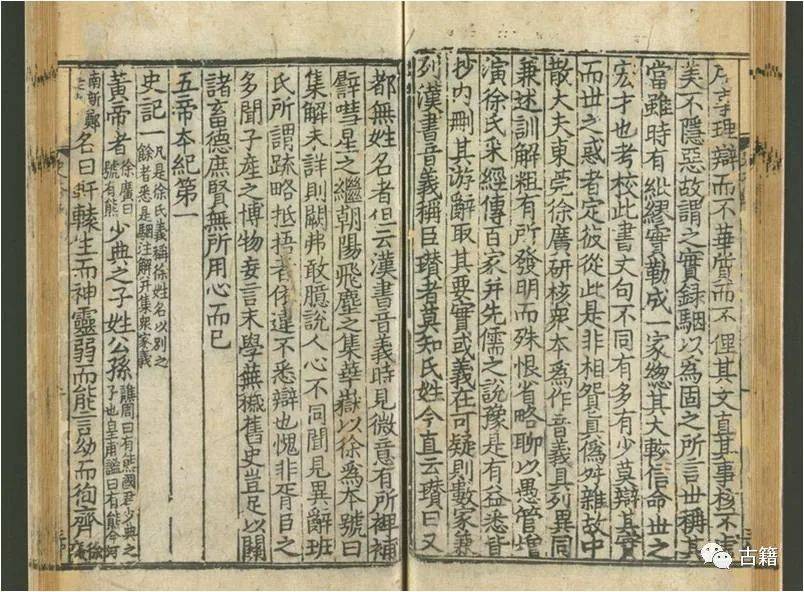 序事理辯而不華質而不俚其文直其事核不虛
美不隱惡故謂之實録駰以爲固之所言世稱其
當雖時有紕繆實勒成一家緫其大較信命世之
宏才也考校此書文句不同有多有少莫辯其實
而世之惑者定彼從此是非相貿眞僞舛雜故中
散大夫東莞徐廣研核衆本爲作音義具列異同
兼述訓解粗有所發明而殊恨省略聊以愚管增
演徐氏采經傳百家并先儒之說豫是有益悉皆
抄内刪其游辭取其要實或義在可疑則數家兼
列漢書音義稱臣瓚者莫知氏姓今直云瓚曰又
都無姓名者但云漢書音義時見微意有所裨補
譬嘒星之繼朝陽飛塵之集華嶽以徐爲本號曰
集解未詳則闕弗敢臆說人心不同聞見異辭班
氏所謂疏略抵捂者依違不悉辯也愧非胥臣之
多聞子產之博物妄言末學蕪穢舊史豈足以關
諸畜德庶賢無所用心而已
五帝本紀第一
史記一凡是徐氏義稱徐姓名以別之餘者悉是駰注解并集衆家義
黃帝者徐廣曰號有熊少典之子姓公孫譙周曰有熊國君少典之子也皇甫謐曰有熊今河
南新鄭名曰軒轅生而神靈弱而能言幼而徇齊徐廣
古籍